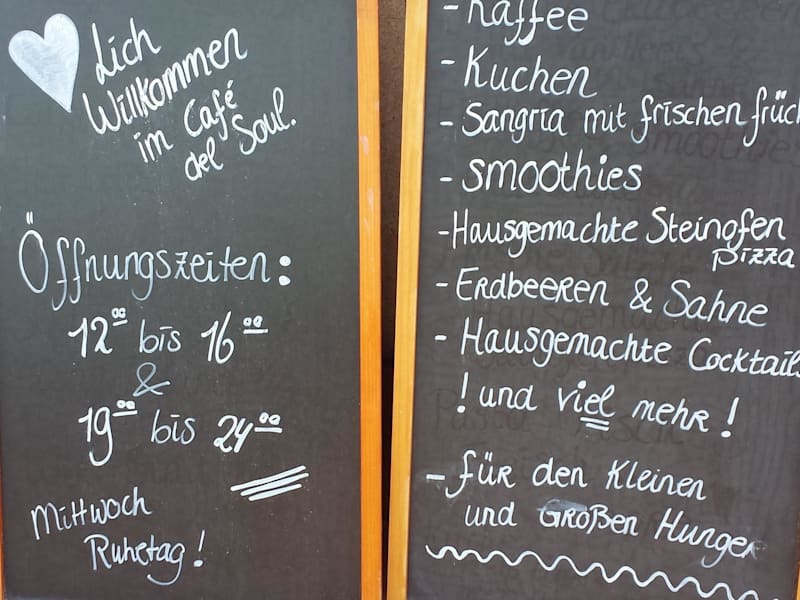 Lich
Willkommen
im Café
del Soul.
Öffnungszeiten:
12⁰⁰ bis 16⁰⁰
&
19⁰⁰ bis 24⁰⁰
Mittwoch
Ruhetag!
- Kaffee
- Kuchen
- Sangria mit frischen früc
- Smoothies
- Hausgemachte Steinofen
pizza
- Erdbeeren & Sahne
- Hausgemachte Cocktails
! und viel mehr!
- für den Kleinen
und Großen Hunger